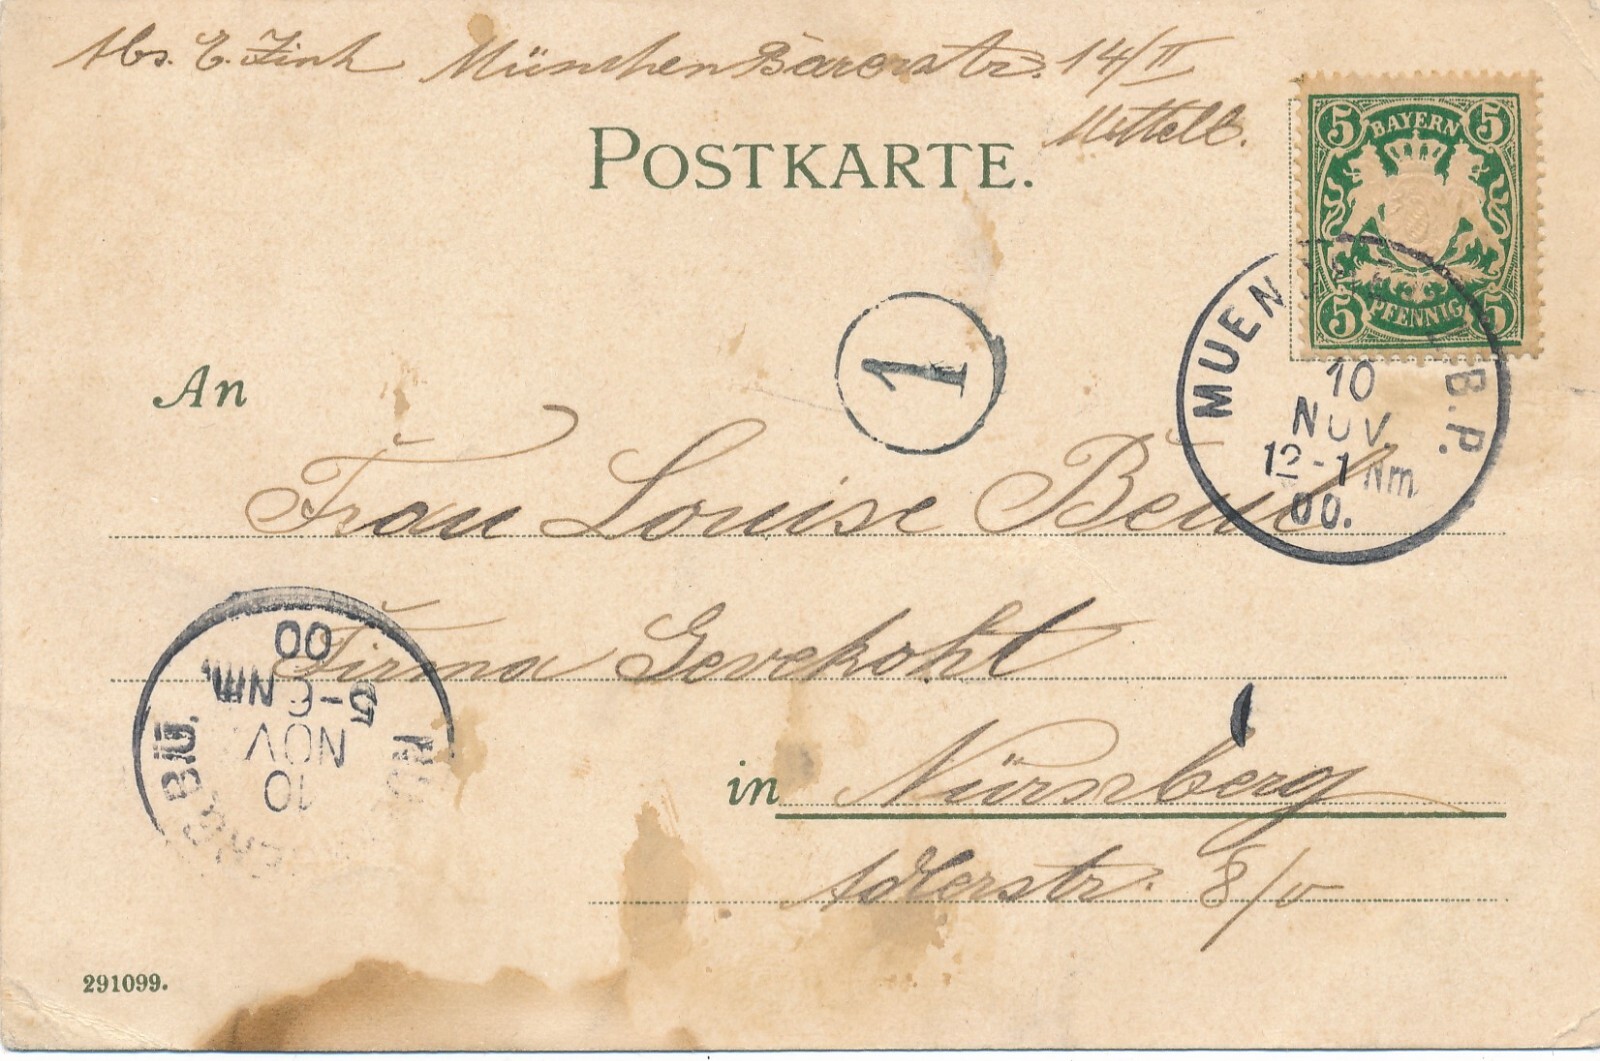 Abs. E. Zink München Barerstr. 14/II
Mittelb.
POSTKARTE.
5 BAYERN 5
5 PFENNIG 5
MUEN B.P.
10
NOV.
12-1 Nm
00.
1
An
Frau Louise
Firma Gevekoht
in Nürnberg
Adlerstr. 8/
NÜ
10
NOV
5-6 NM.
00
291099.